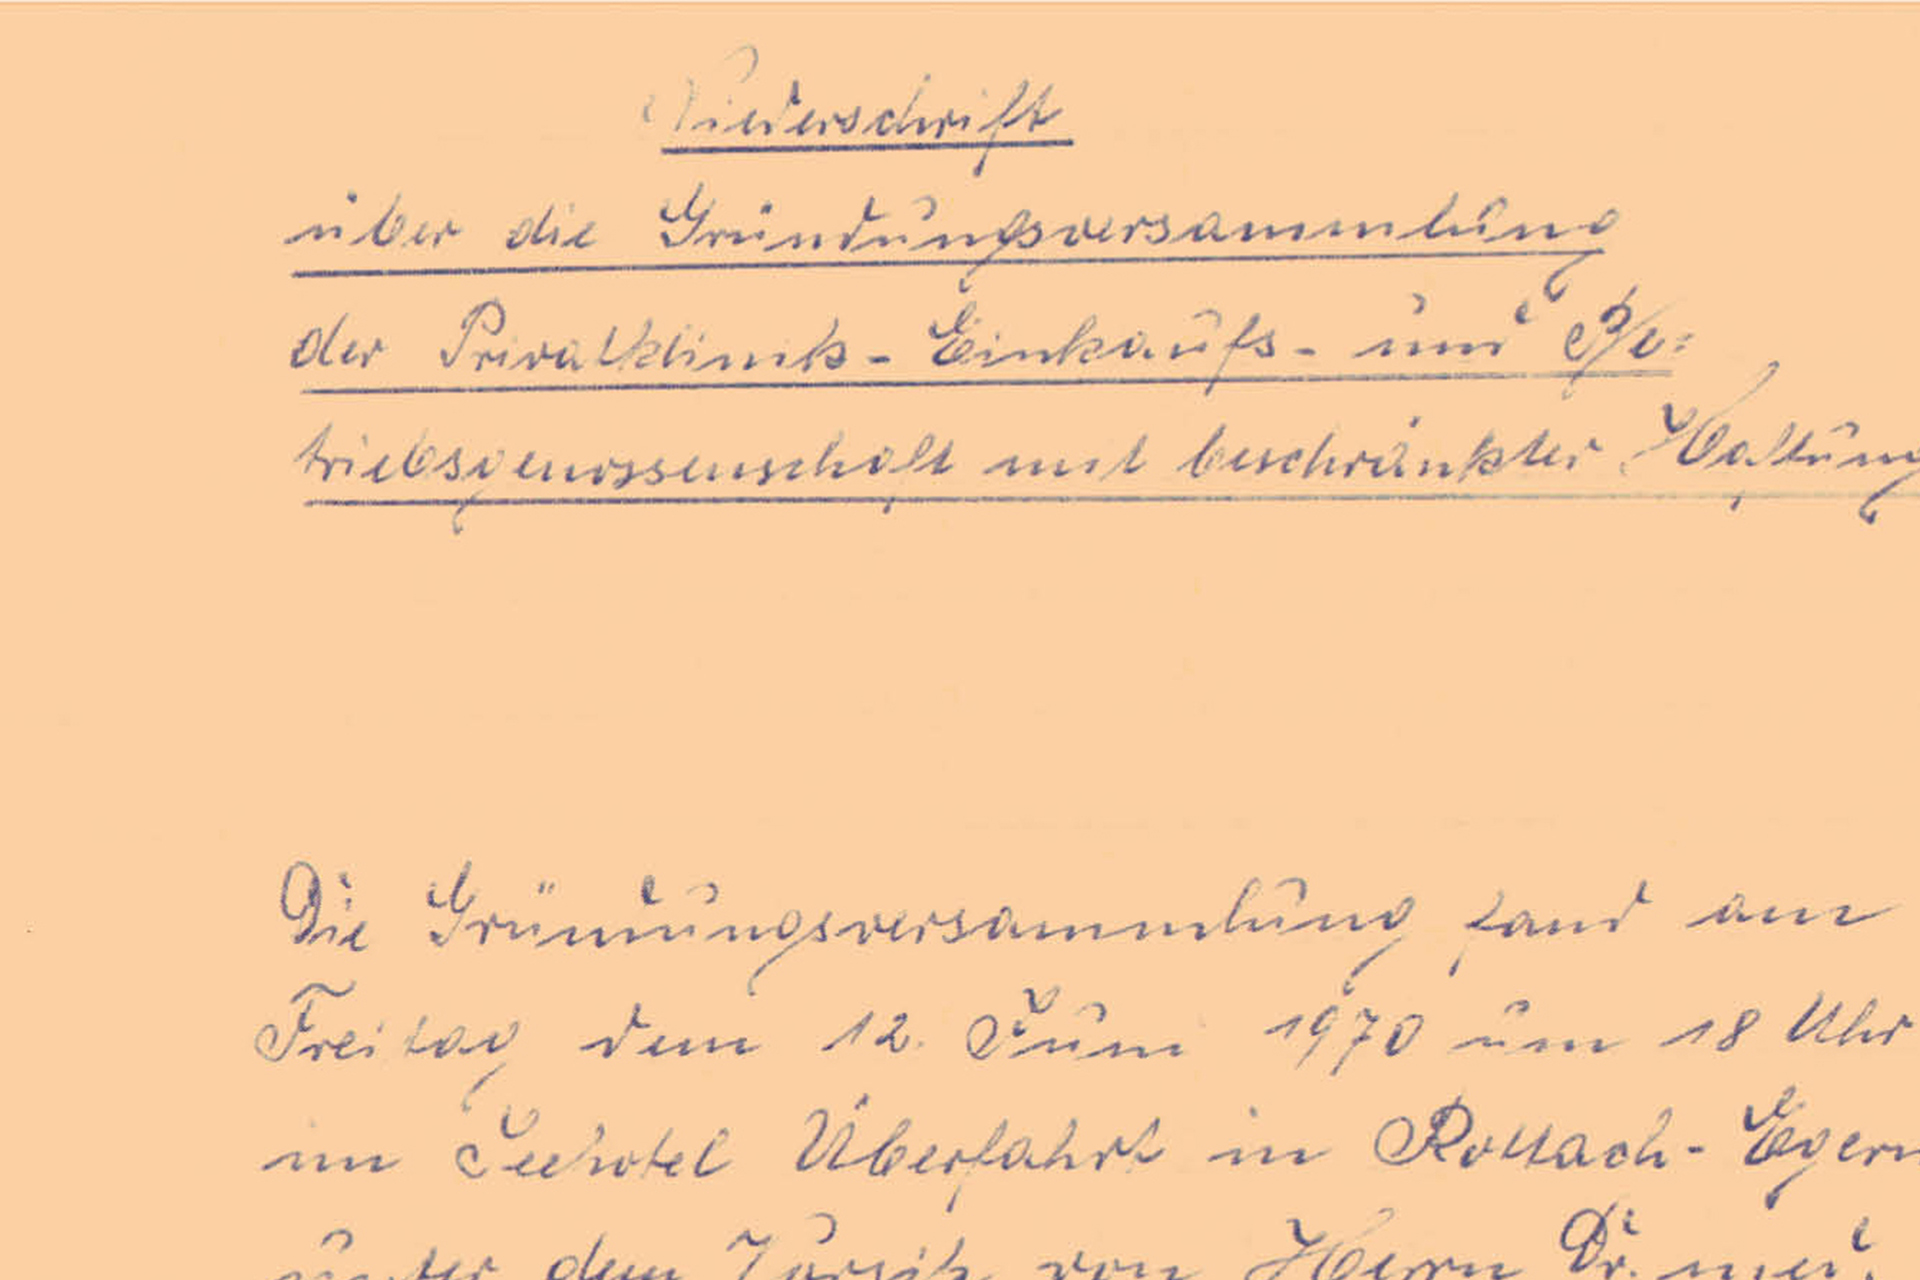 Niederschrift
über die Gründungsversammlung
der Privatklinik-Einkaufs- und Be=
triebsgenossenschaft mit beschränkter Haftung
Die Gründungsversammlung fand am
Freitag dem 12. Juni 1970 um 18 Uhr
im Seehotel Überfahrt in Rottach-Egern
unter dem Vorsitz von Herrn Dr. med.